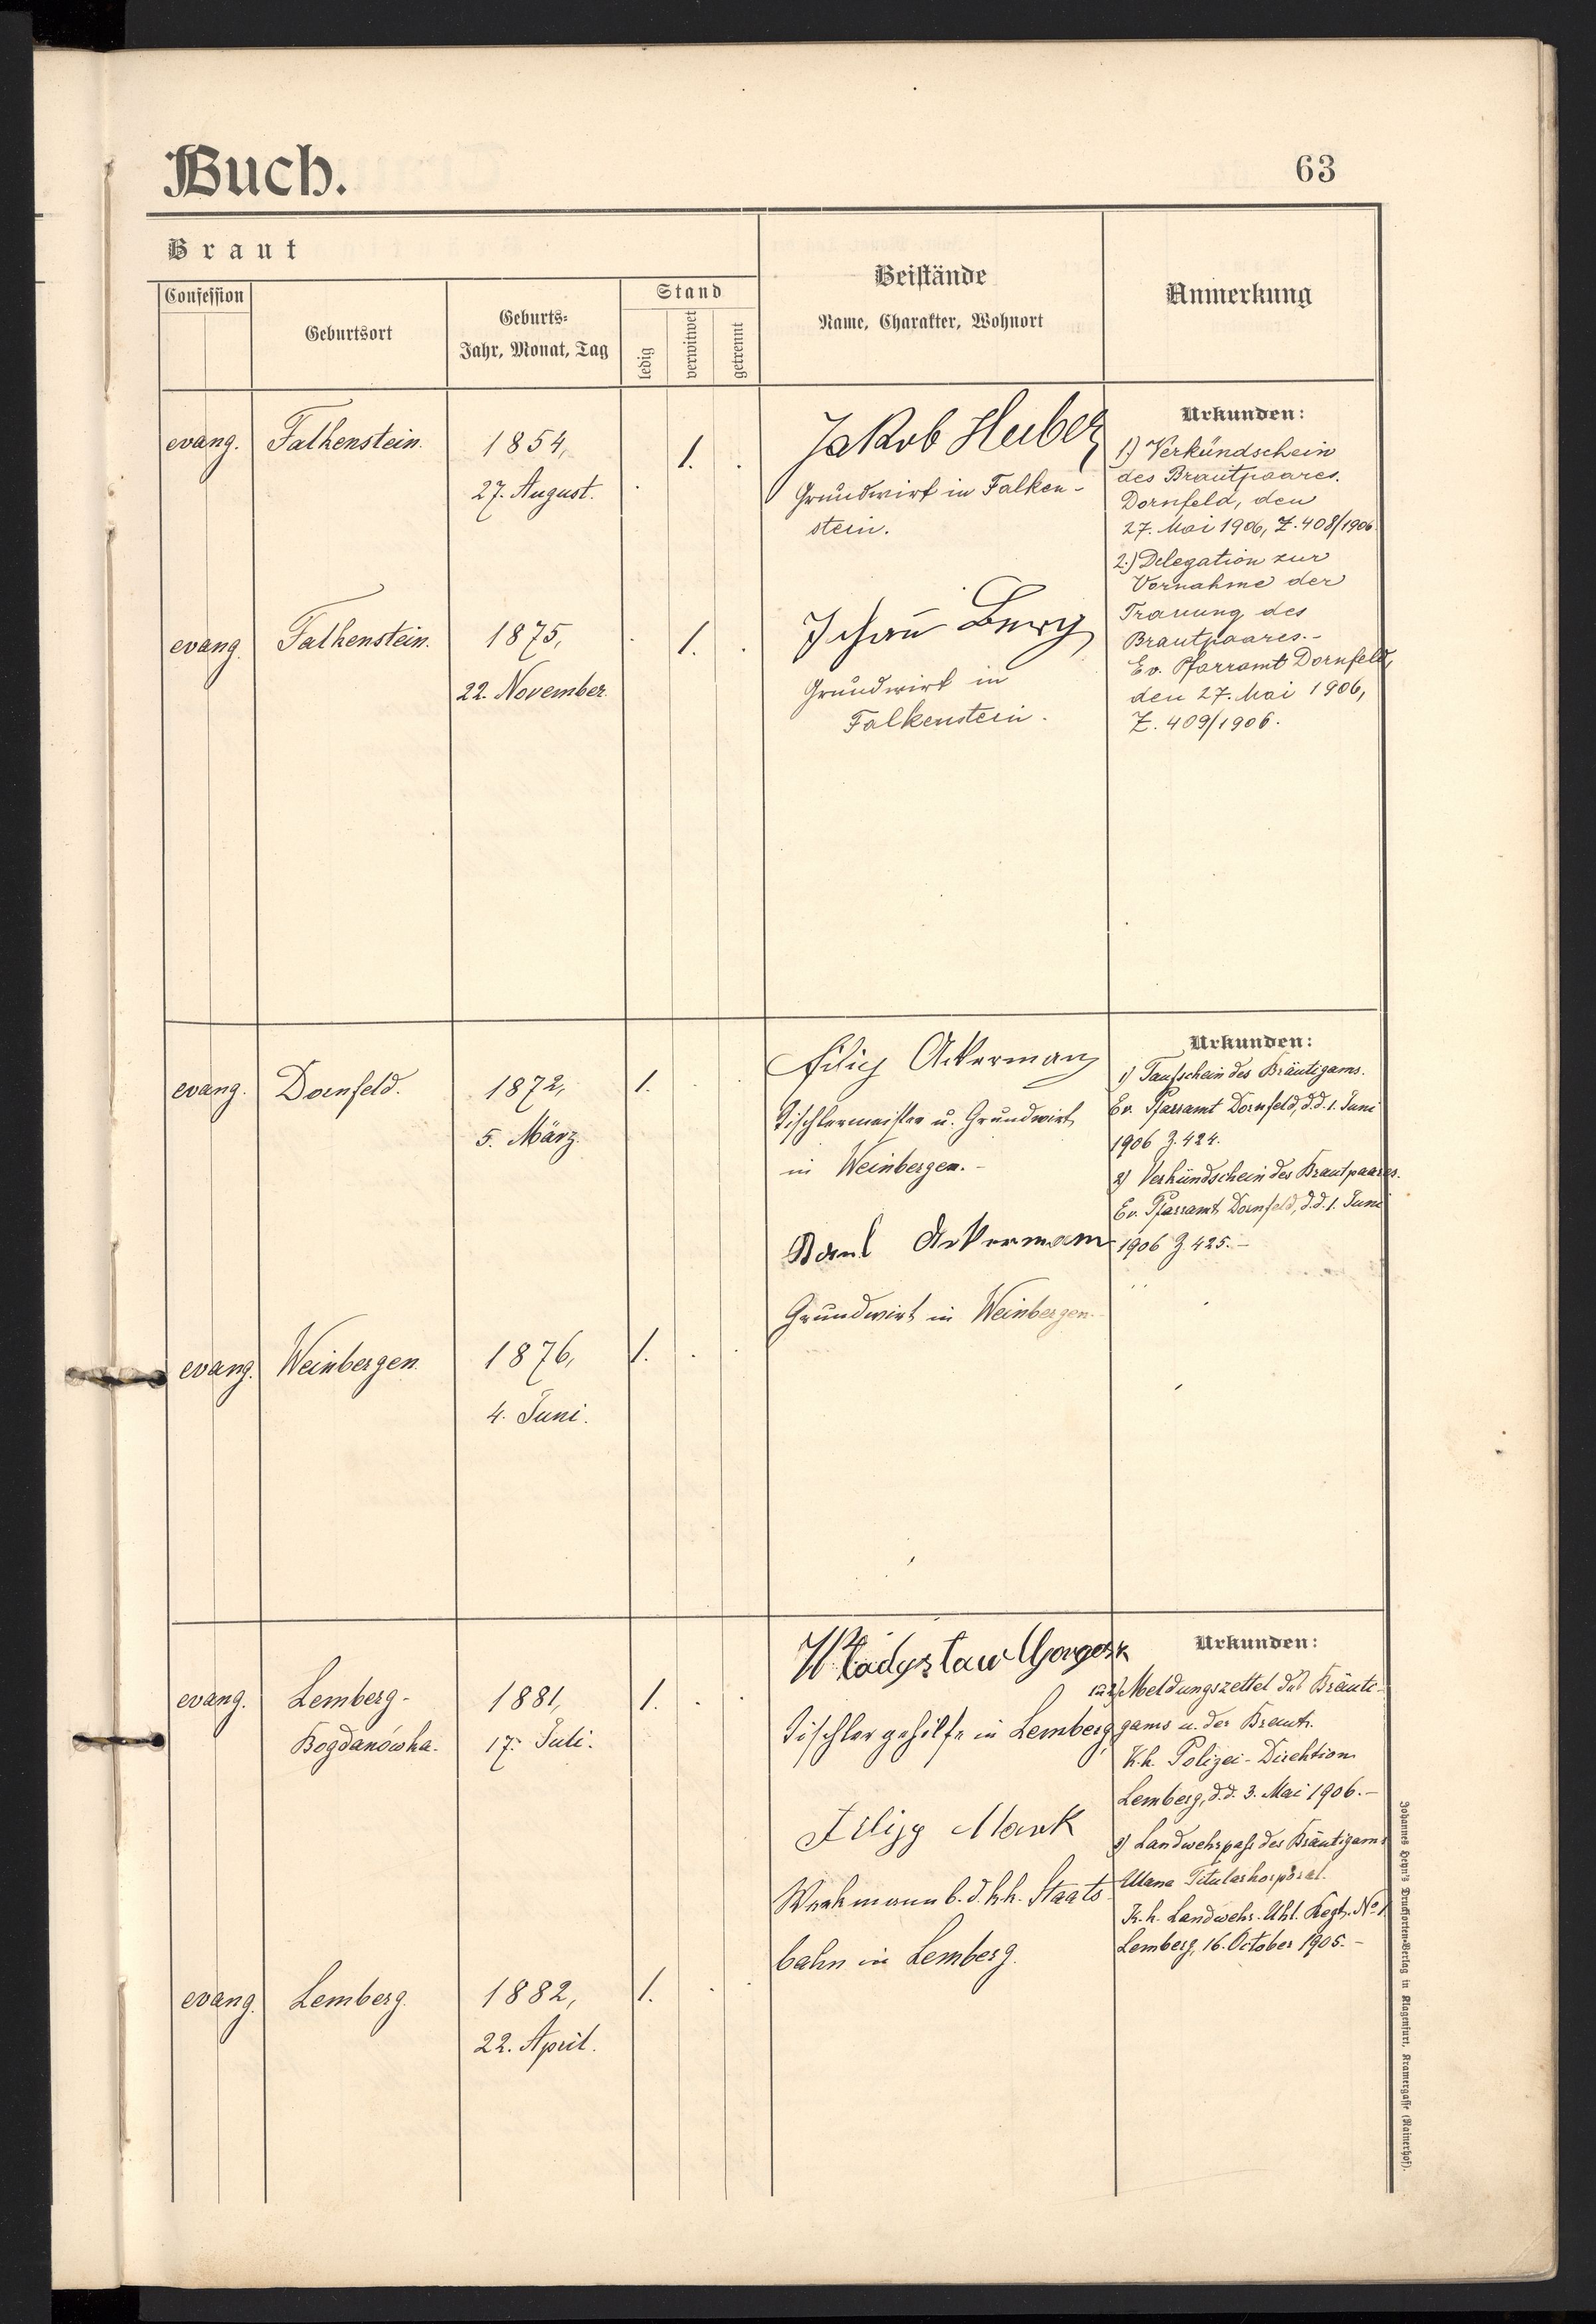 Buch.
63
Braut
Confession
Geburtsort
Geburts-
Jahr, Monat, Tag
Stand
ledig
verwitwet
getrennt
Beistände
Name, Charakter, Wohnort
Anmerkung
evang.
Falkenstein.
1854,
27. August.
1.
Jakob Huber
Grundwirt in Falken-
stein.
Urkunden:
1) Verkündschein
des Brautpaares.
Dornfeld, den
27. Mai 1906, Z. 408/1906.
2.) Delegation zur
Vornahme der
Trauung des
Brautpaares.-
Ev. Pfarramt Dornfeld,
den 27. Mai 1906,
Z. 409/1906.
evang.
Falkenstein.
1875,
22. November.
1.
Johann
Grundwirt in
Falkenstein.
evang.
Dornfeld.
1872,
5. März.
1.
Filip Ackermann
Tischlermeister u. Grundwirt
in Weinbergen.-
Ackermann
Grundwirt in Weinbergen.-
Urkunden:
1) Taufschein des Bräutigams.
Ev. Pfarramt Dornfeld, d.d. 1. Juni
1906 Z. 424.
2) Verkündschein des Brautpaares.
Ev. Pfarramt Dornfeld, d.d. 1. Juni
1906 Z. 425.-
evang.
Weinbergen.
1876,
4. Juni.
1.
evang.
Lemberg-
Bogdanówka.
1881,
17. Juli.
1.
Władysław
Tischlergehilfe in Lemberg,
Filipp Mark
Werkmann b. d. k.k. Staats-
bahn in Lemberg.
Urkunden:
1 u 2) Meldungszettel des Bräuti-
gams u. der Braut.
K.k. Polizei-Direktion
Lemberg, d.d. 3. Mai 1906.-
3) Landwehrpaß des Bräutigams
Ulana Titularkorporal.
K.k. Landwehr-Uhl. Regt. No 1
Lemberg, 16. October 1905.-
evang.
Lemberg.
1882,
22. April.
1.
Johannes Heyn's Drucksorten-Verlag in Klagenfurt, Kramergasse (Rainerhof).